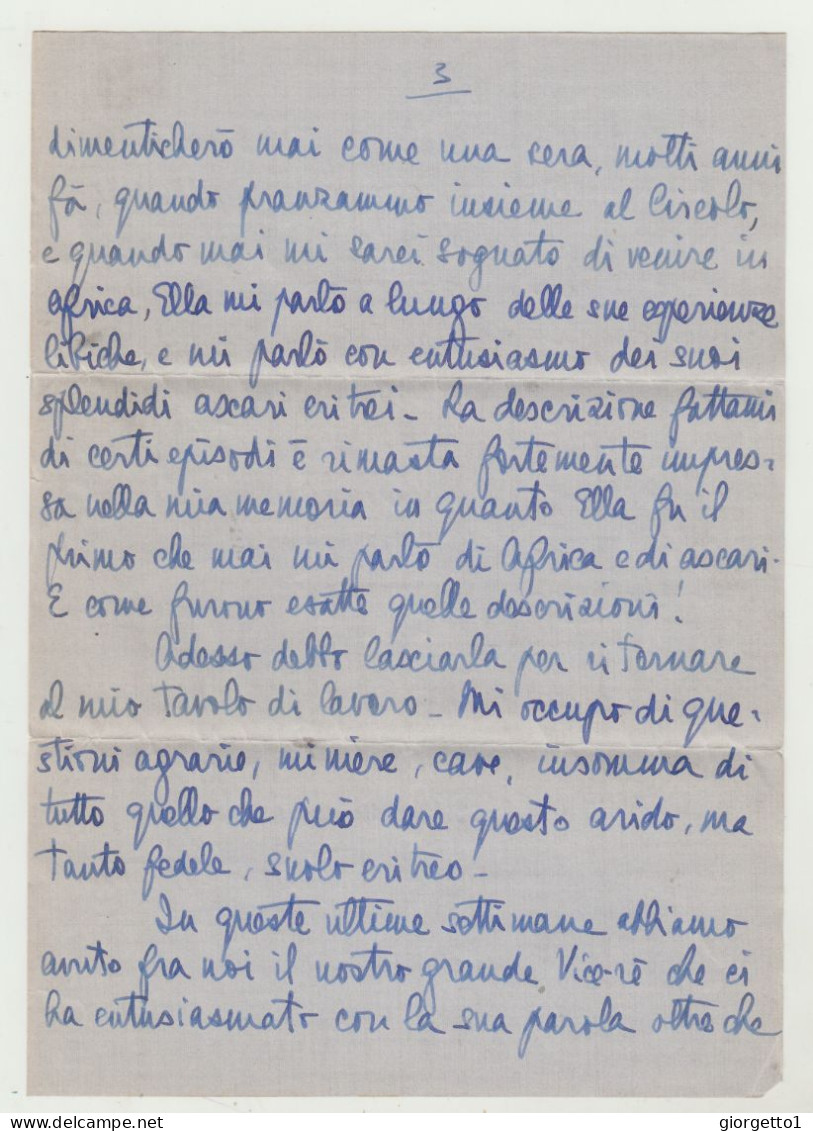 3
dimenticherò mai come una sera, molti anni
fà, quando pranzammo insieme al Circolo,
e quando mai mi sarei sognato di venire in
Africa, Ella mi parlò a lungo delle sue esperienze
libiche, e mi parlò con entusiasmo dei suoi
splendidi ascari eritrei - La descrizione fattami
di certi episodi è rimasta fortemente impres-
sa nella mia memoria in quanto Ella fu il
primo che mai mi parlò di Africa e di ascari.
E come furono esatte quelle descrizioni!
Adesso debbo lasciarla per ritornare
al mio tavolo di lavoro - Mi occupo di que-
stioni agrarie, miniere, cave, insomma di
tutto quello che può dare questo arido, ma
tanto fedele, suolo eritreo -
In queste ultime settimane abbiamo
avuto fra noi il nostro grande Vice-rè che ci
ha entusiasmato con la sua parola oltre che
delcampe.net
giorgetto1